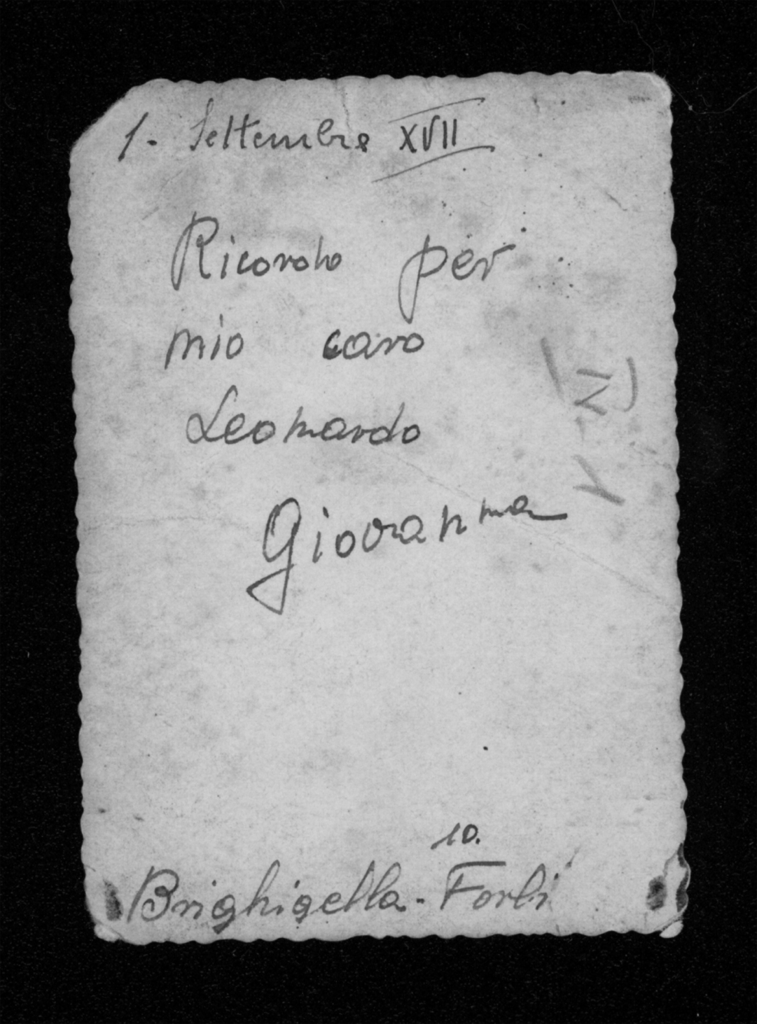 1. Settembre XVII
Ricordo per
mio caro
Leonardo
Giovanna
10.
Brighigella - Forlì